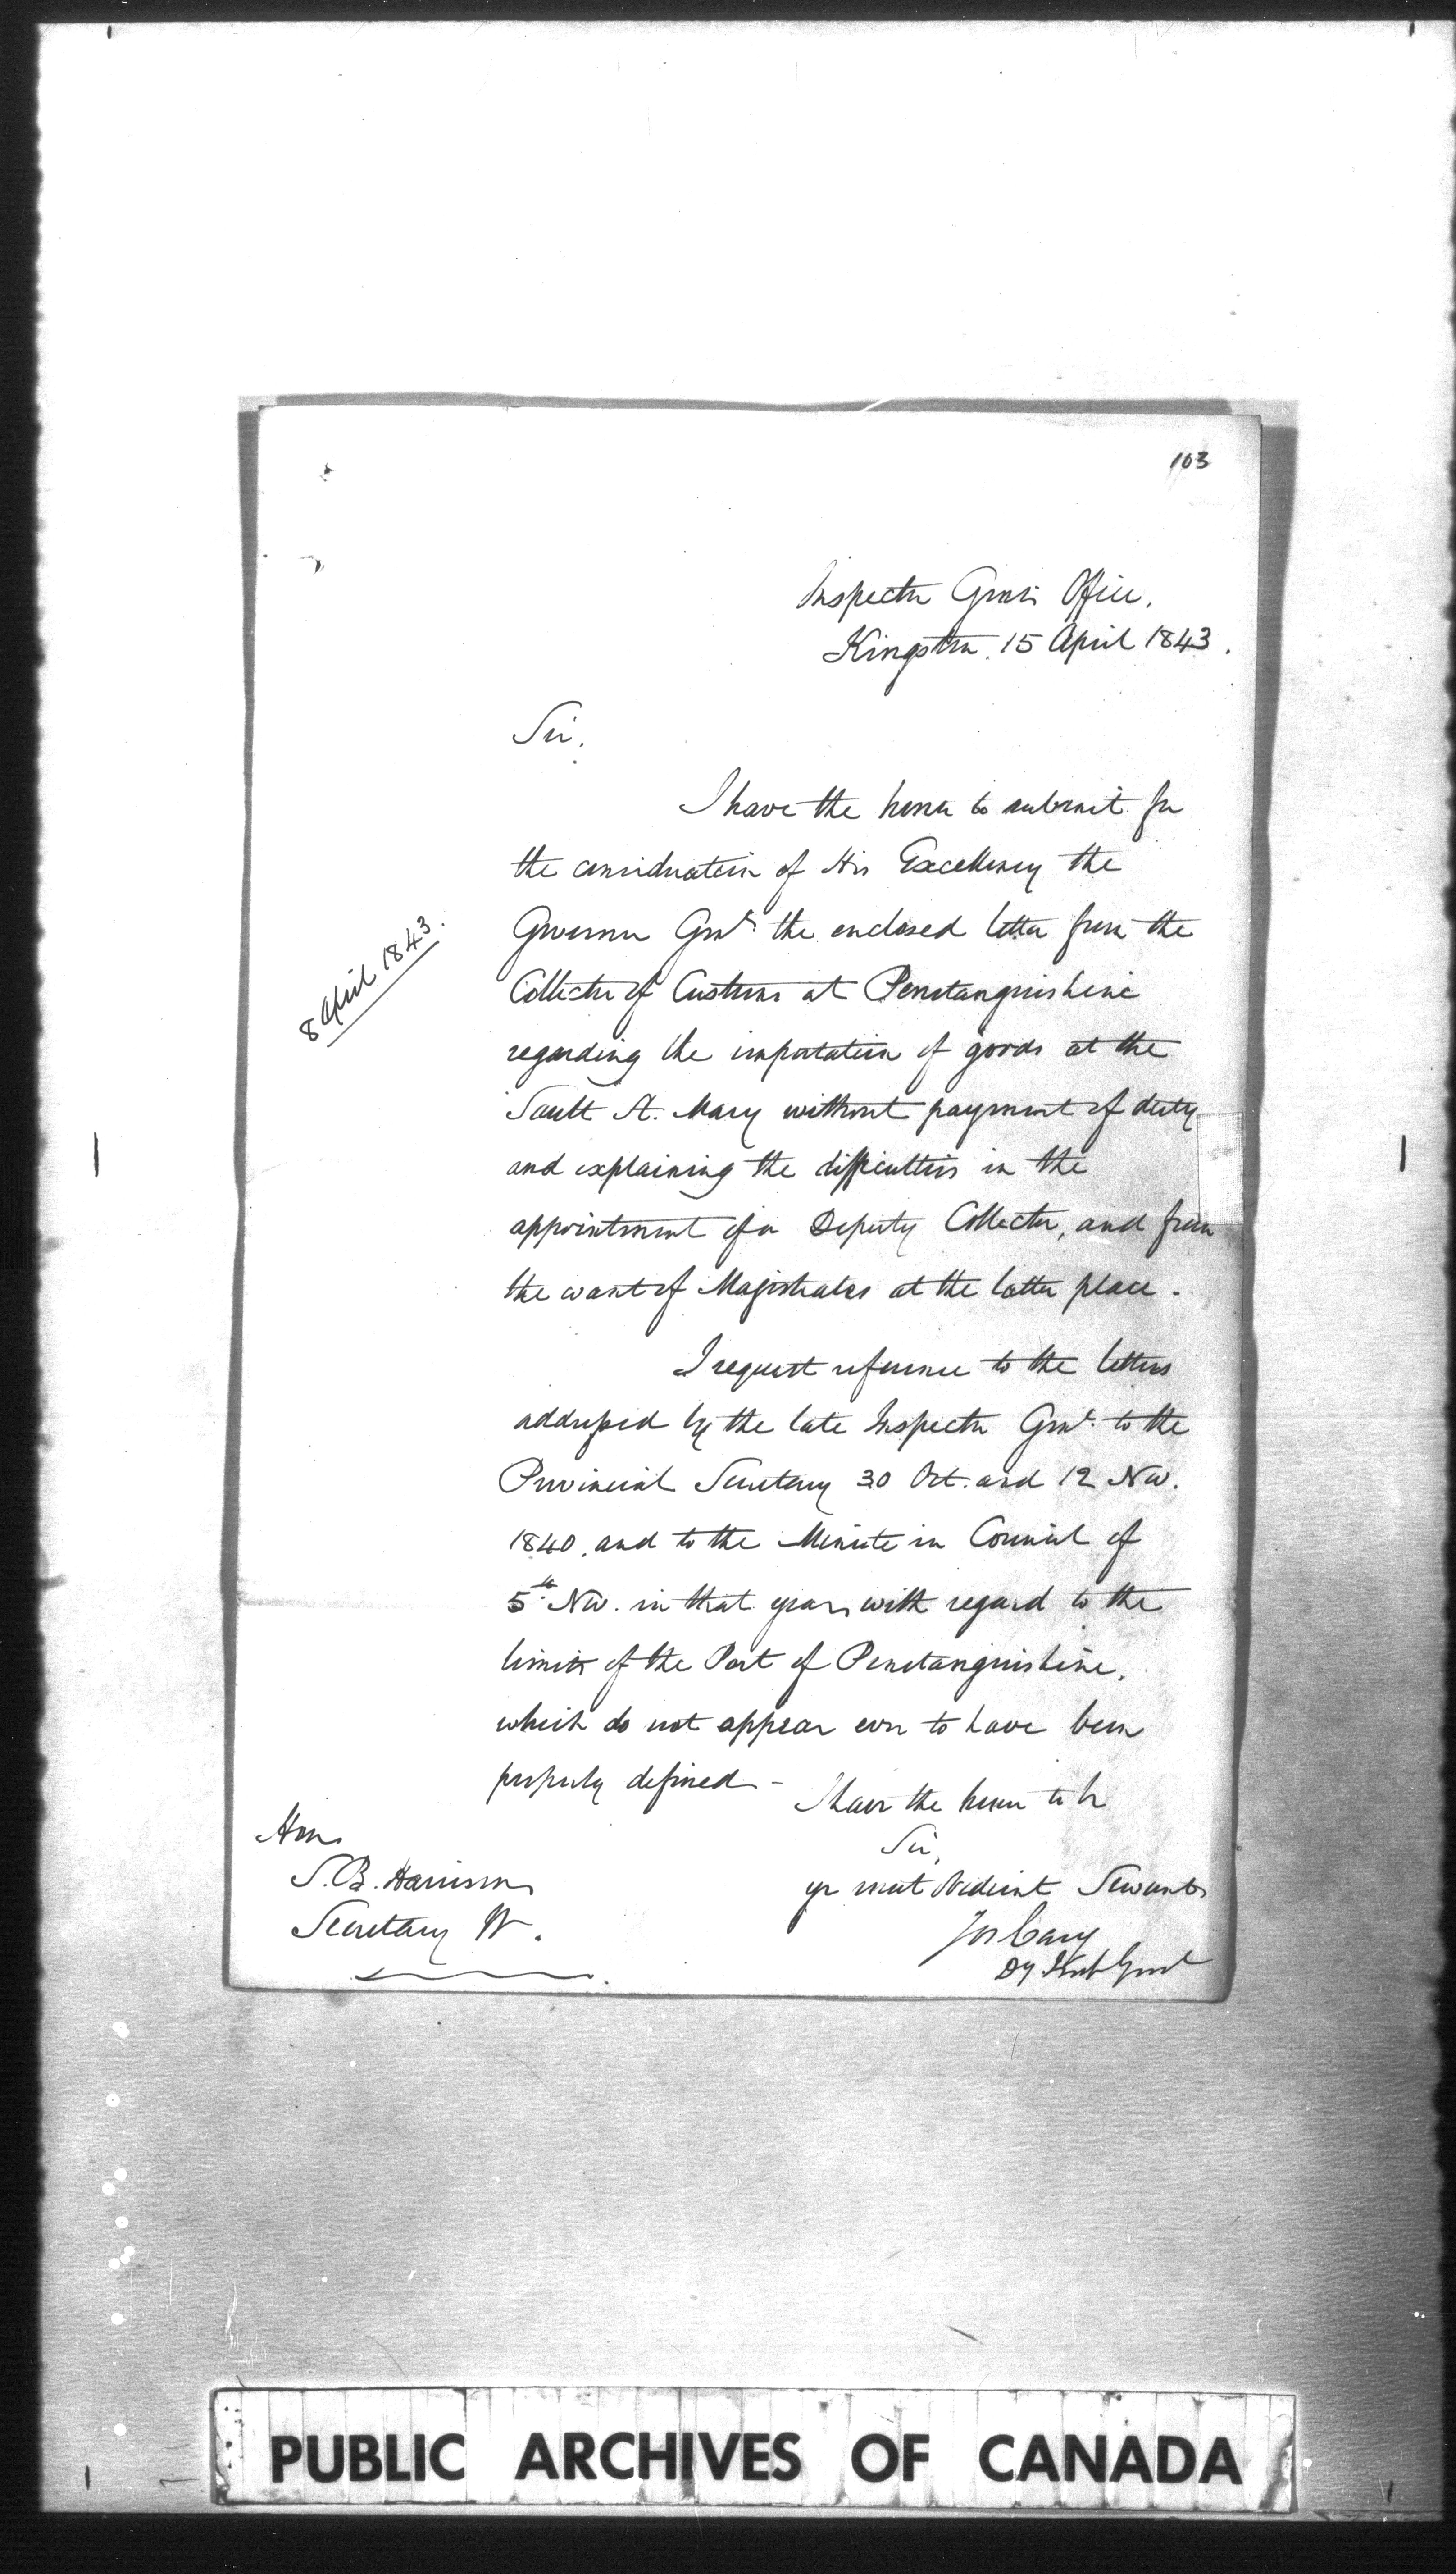 103
Inspector Genl's Office,
Kingston. 15 April 1843.
Sir,
I have the honor to submit for
the consideration of His Excellency the
Governor Genl. the enclosed letter from the
8 April 1843.
Collector of Customs at Penetanguishine
regarding the importation of goods at the
Sault St. Mary without payment of duty
and explaining the difficulties in the
appointment of a Deputy Collector, and from
the want of Magistrates at the latter place -
I request reference to the letters
addressed by the late Inspector Genl. to the
Provincial Secretary 30 Oct. and 12 Nov.
1840, and to the Minute in Council of
5th Nov. in that year, with regard to the
limits of the Port of Penetanguishine,
which do not appear ever to have been
properly defined -
I have the honor to be
Sir,
yr most obedient Servant
Jos Cary
Dy Genl
Hon
S. B. Harrison
Secretary W.
PUBLIC ARCHIVES OF CANADA